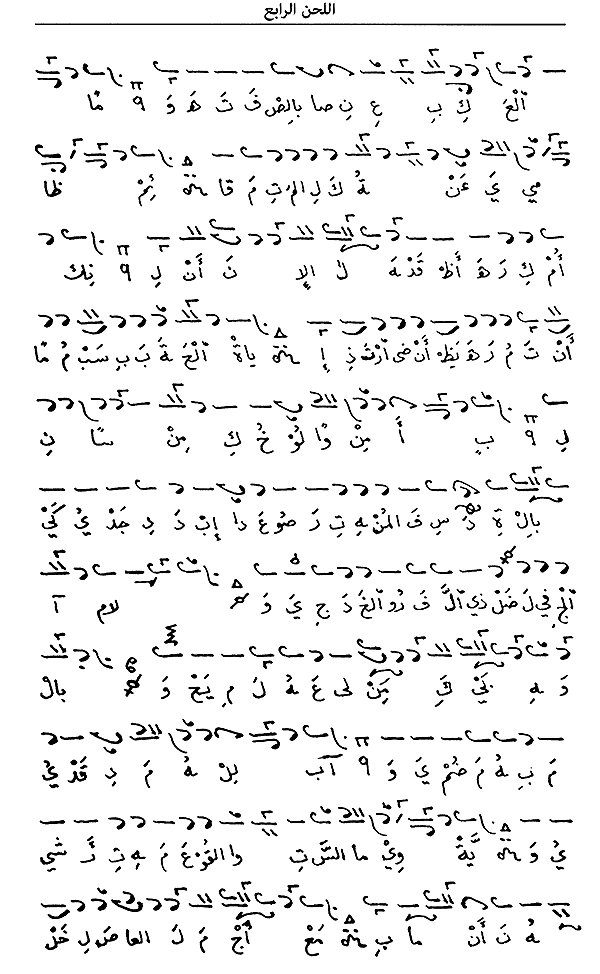 اللحن الرابع
اَلْعَ كِ بِ عِ نِ صا بالِصْ فَ تَ هَ وَ ٩ مّا
مي يَ عَنْ ةُ كَ لِ المَ تِ مَ قا ئِمْ ظا
أُمْ كِ رَ هَ أَظْ قَدْ هَ لَ الإِ نَ أَنْ لِ ٩ نِكِ
أَنْ تَ مُ رَ هَ يَظْ أَنْ ضى اَرْتَ ذِ إِ ياةْ اَلْحَ ةَ بَ بِ سَبْ مُ مّا
لِ ٩ بِ أَ مِنْ وا لَوْ خُ كِ مِنْ سا نِ
بالِ ةِ دَ سِ فَ المُنْ هِ تِ رَ صوْ عَ دا إِبْ دَ دِ جَدْ يُ كَيْ
اَلْجِ في لَ ضَلْ ذي اَلَّ فَ رُو اَلخَ دَ جِ يَ وَ لام آ
وَ هِ بَيْ كِ مَنْ لى عَ هُ لَ مِ يَحْ وَ بالْ
مَ بِ هُ مَ ضُمْ يَ وَ ٩ آب بِلْ هُ مَ دِ قَدْ يُ
يُ وَ يَّةْ وِيْ ما السَّ تِ وا القُوْ عَ مَ هِ تِ رَ شي
هُ نَ أَنْ ما بِ مَعْ أَجْ مَ لَ العا صَ لِ خَلْ